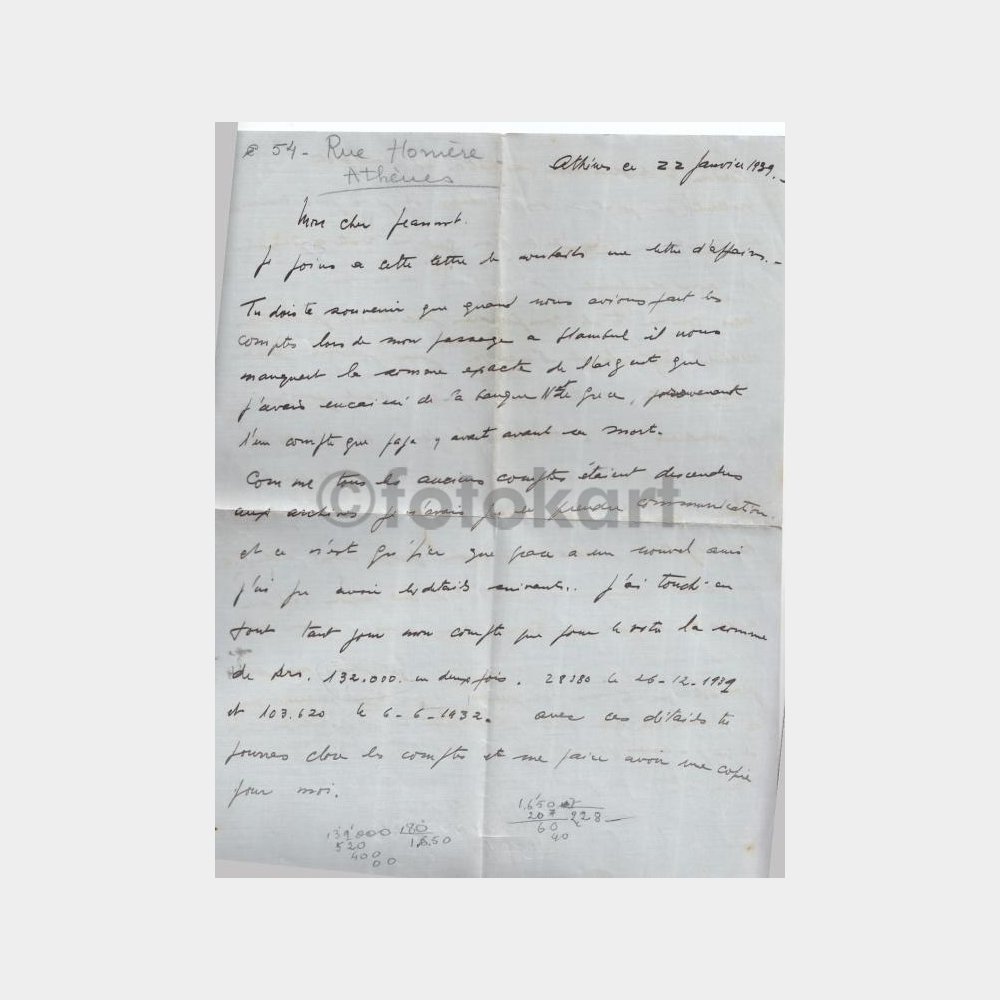 54 - Rue Homère -
Athènes
Athènes ce 22 Janvier 1939.-
Mon cher Jeannot.
Je joins a cette lettre une lettre d'affaires.-
Tu dois te souvenir que quand nous avions fait les
comptes lors de mon passage a Stambul il nous
manquait la somme exacte de l'argent que
j'avais encaissé de la banque Nle de Grece, provenant
d'un compte que papa y avait avant sa mort.
Comme tous les anciens comptes étaient descendus
aux archives je n'avais pu en prendre communication.
et ce n'est que grace a un nouvel ami
j'ai pu avoir les details suivants.. j'ai touché en
tout tant pour mon compte que pour le votre la somme
de Drs. 132.000. en deux fois. 28380 le 26-12-1932
et 103.620 le 6-6-1932. avec ces détails tu
pourras clore les comptes et me faire avoir une copie
pour moi.
1.650
207 228
60
40
132.000 180
520 1.650
400
00
©fotokart